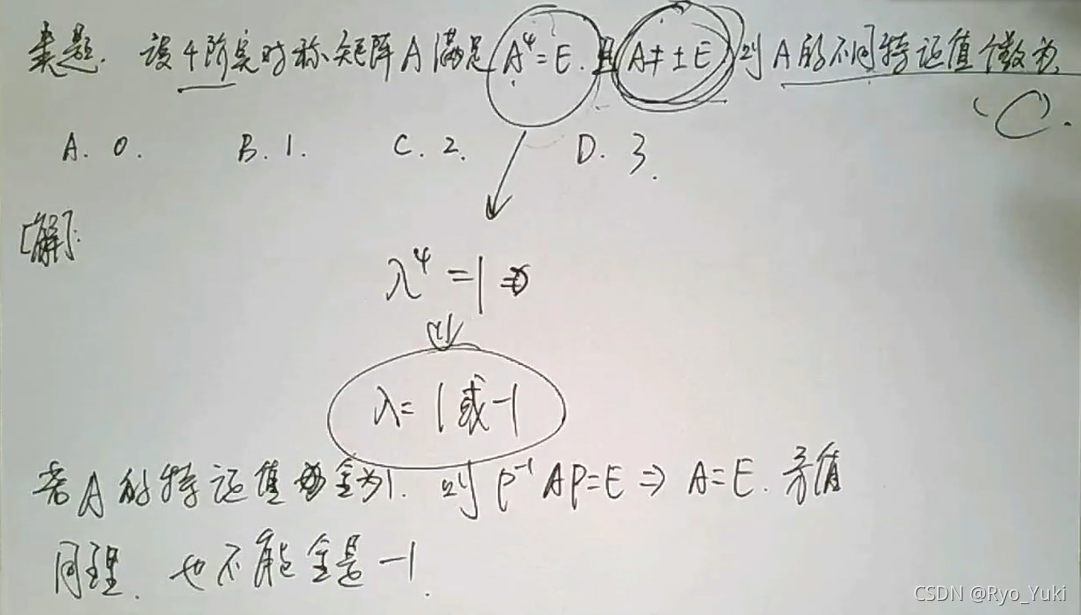 类题. 设4阶实对称矩阵A满足A⁴=E. 且A≠±E, 则A的不同特征值个数为 (C).
A. 0. B. 1. C. 2. D. 3.
[解]:
λ⁴=1⇒
λ=1或-1
若A的特征值全为1. 则P⁻¹AP=E⇒A=E. 矛盾
同理. 也不能全是-1.
CSDN @Ryo_Yuki